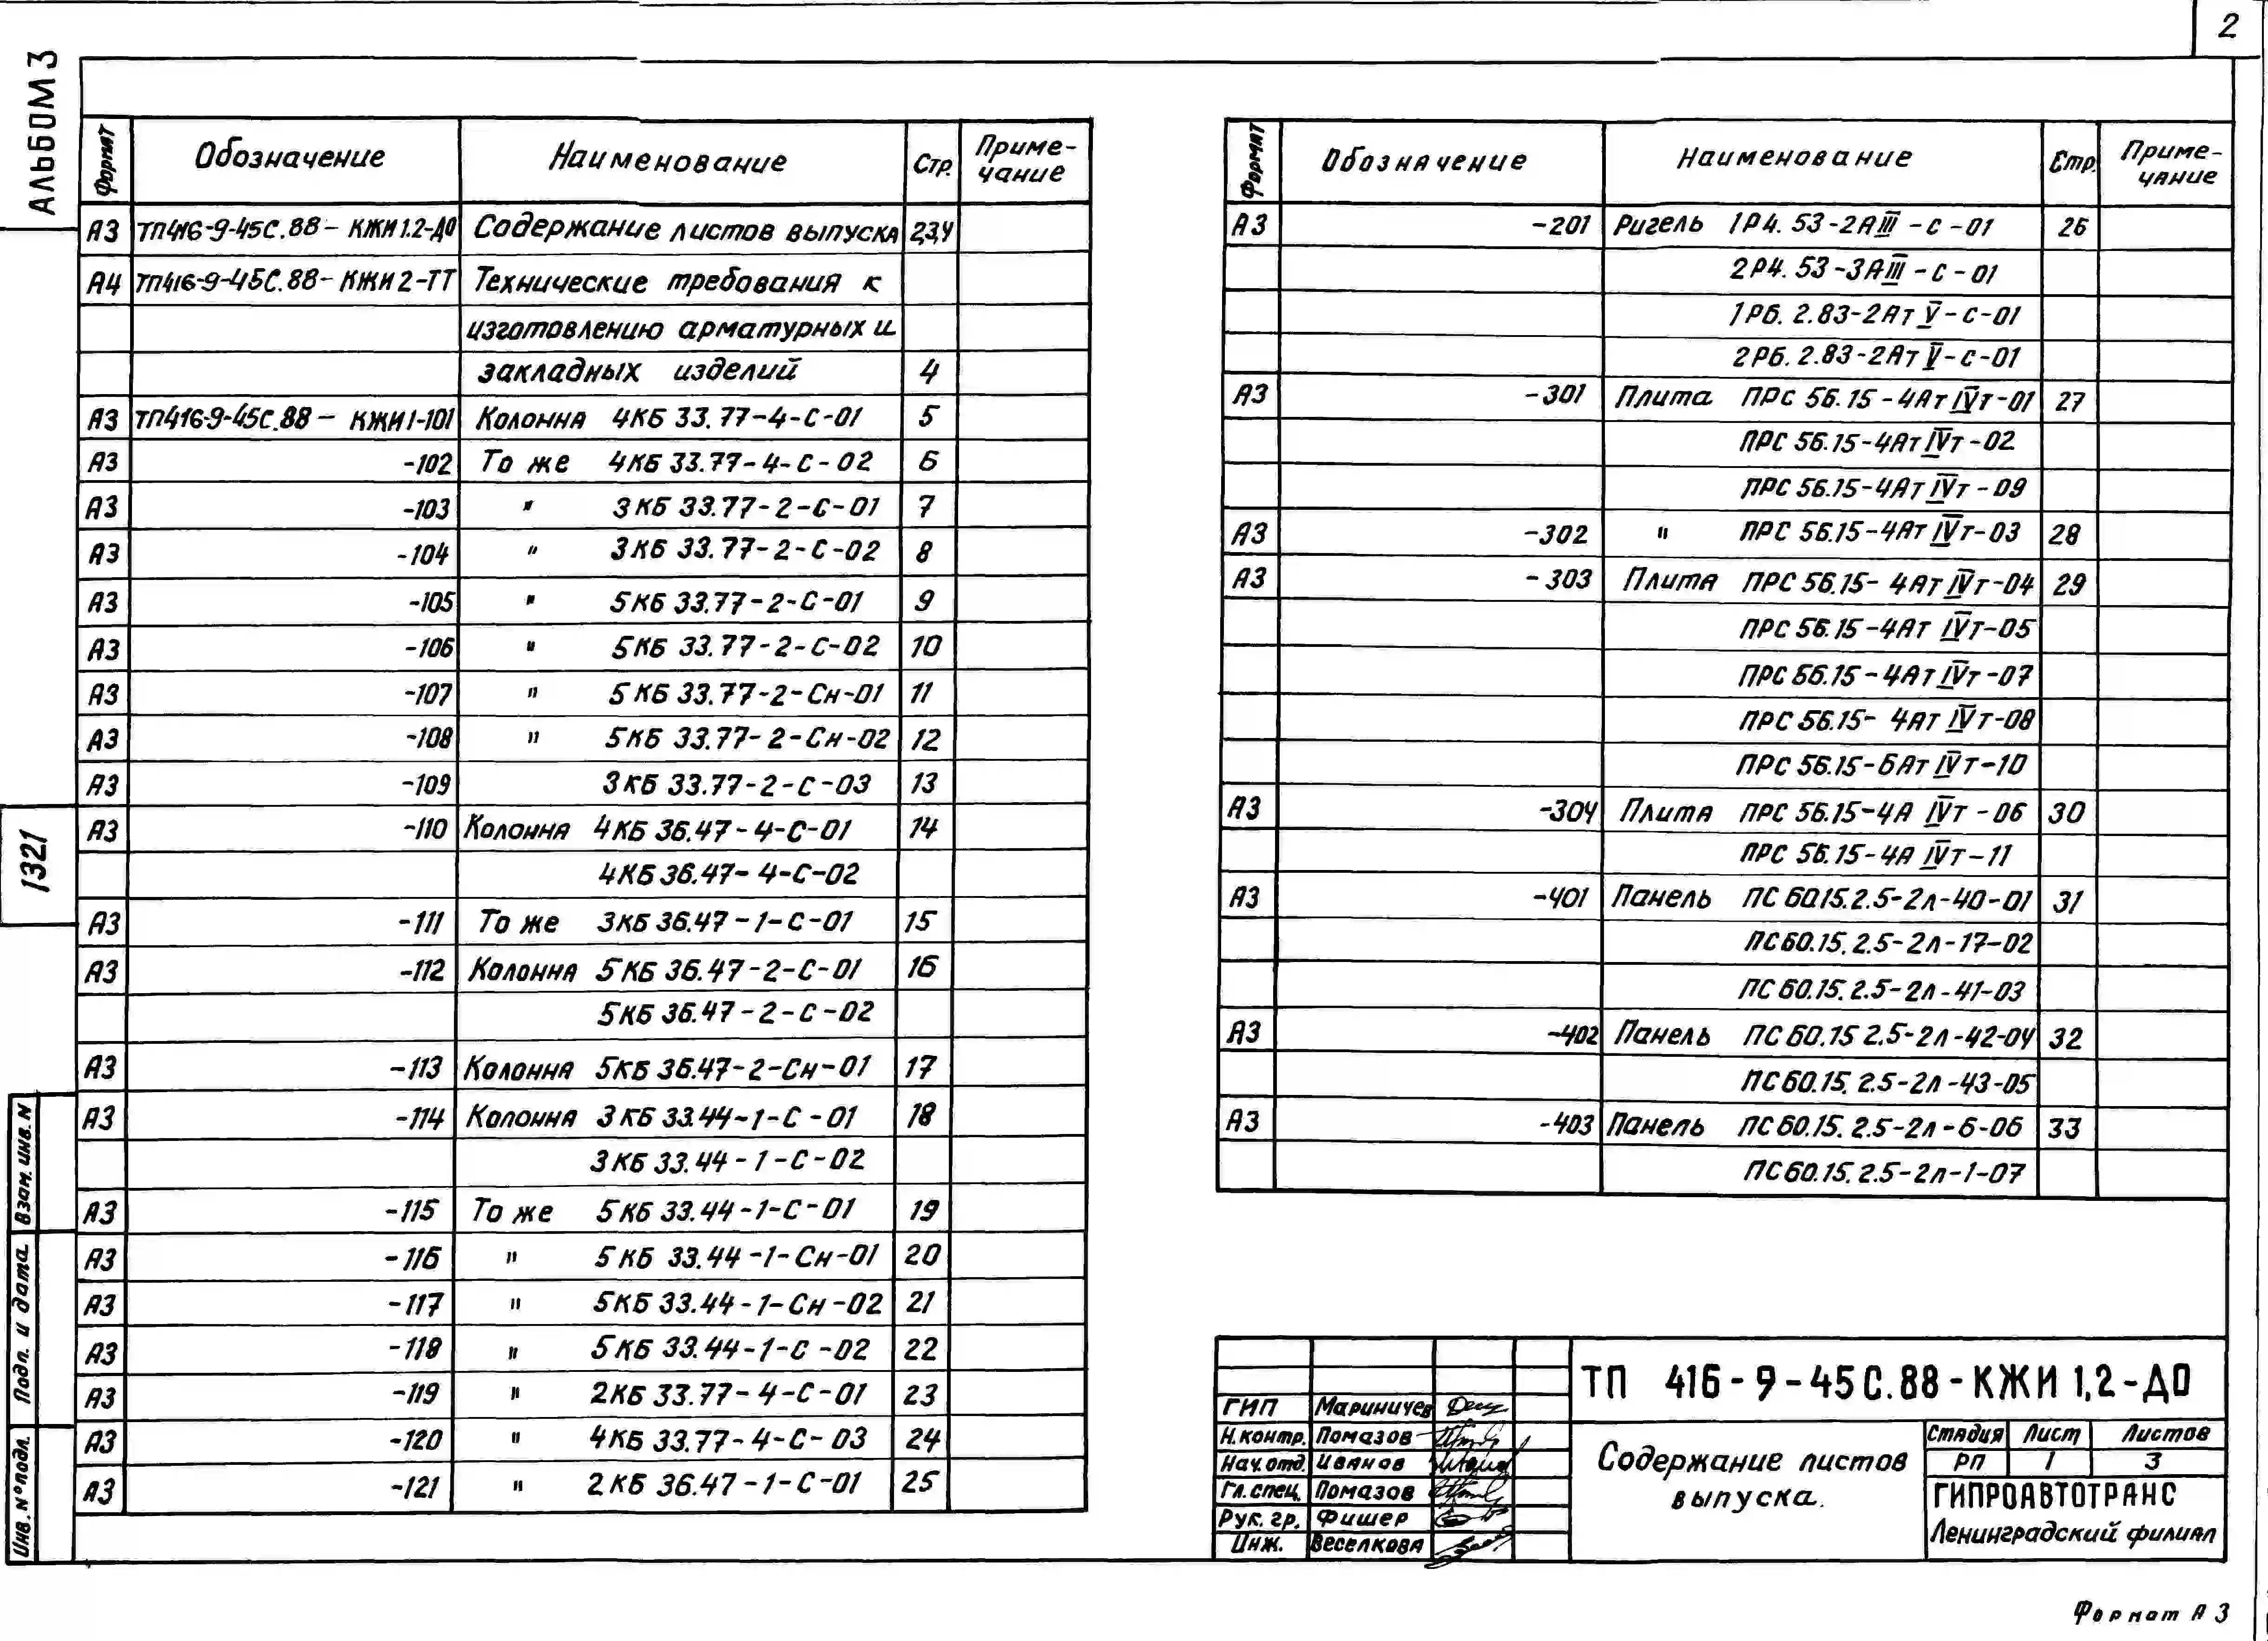 2
Альбом 3
Формат Обозначение Наименование Стр. Приме-
чание
А3 ТП416-9-45С.88- КЖИ1.2-ДО Содержание листов выпуска 2,3,4
А4 ТП416-9-45С.88- КЖИ2-ТТ Технические требования к
изготовлению арматурных и
закладных изделий 4
А3 ТП416-9-45С.88- КЖИ1-101 Колонна 4КБ 33.77-4-С-01 5
А3 -102 То же 4КБ 33.77-4-С-02 6
А3 -103 " 3КБ 33.77-2-С-01 7
А3 -104 " 3КБ 33.77-2-С-02 8
А3 -105 " 5КБ 33.77-2-С-01 9
А3 -106 " 5КБ 33.77-2-С-02 10
А3 -107 " 5КБ 33.77-2-Сн-01 11
А3 -108 " 5КБ 33.77-2-Сн-02 12
А3 -109 3КБ 33.77-2-С-03 13
А3 -110 Колонна 4КБ 36.47-4-С-01 14
4КБ 36.47-4-С-02
А3 -111 То же 3КБ 36.47-1-С-01 15
А3 -112 Колонна 5КБ 36.47-2-С-01 16
5КБ 36.47-2-С-02
А3 -113 Колонна 5КБ 36.47-2-Сн-01 17
А3 -114 Колонна 3КБ 33.44-1-С-01 18
3КБ 33.44-1-С-02
А3 -115 То же 5КБ 33.44-1-С-01 19
А3 -116 " 5КБ 33.44-1-Сн-01 20
А3 -117 " 5КБ 33.44-1-Сн-02 21
А3 -118 " 5КБ 33.44-1-С-02 22
А3 -119 " 2КБ 33.77-4-С-01 23
А3 -120 " 4КБ 33.77-4-С-03 24
А3 -121 " 2КБ 36.47-1-С-01 25
Формат Обозначение Наименование Стр. Приме-
чание
А3 -201 Ригель 1Р4.53-2АIII-С-01 26
2Р4.53-3АIII-С-01
1Р6.2.83-2АтV-С-01
2Р6.2.83-2АтV-С-01
А3 -301 Плита ПРС 56.15-4АтIVт-01 27
ПРС 56.15-4АтIVт-02
ПРС 56.15-4АтIVт-09
А3 -302 " ПРС 56.15-4АтIVт-03 28
А3 -303 Плита ПРС 56.15-4АтIVт-04 29
ПРС 56.15-4АтIVт-05
ПРС 56.15-4АтIVт-07
ПРС 56.15-4АтIVт-08
ПРС 56.15-6АтIVт-10
А3 -304 Плита ПРС 56.15-4А IVт-06 30
ПРС 56.15-4А IVт-11
А3 -401 Панель ПС 60.15.2.5-2л-40-01 31
ПС 60.15.2.5-2л-17-02
ПС 60.15.2.5-2л-41-03
А3 -402 Панель ПС 60.15 2.5-2л-42-04 32
ПС 60.15.2.5-2л-43-05
А3 -403 Панель ПС 60.15.2.5-2л-6-06 33
ПС 60.15.2.5-2л-1-07
1321
Взам. инв. N
Подп. и дата
Инв. N°подл.
ГИП Мариничев
Н.контр. Помазов
Нач.отд. Иванов
Гл.спец. Помазов
Рук. гр. Фишер
Инж. Веселкова
ТП 416-9-45С.88-КЖИ 1,2-ДО
Содержание листов
выпуска.
Стадия Лист Листов
РП 1 3
ГИПРОАВТОТРАНС
Ленинградский филиал
Формат А3